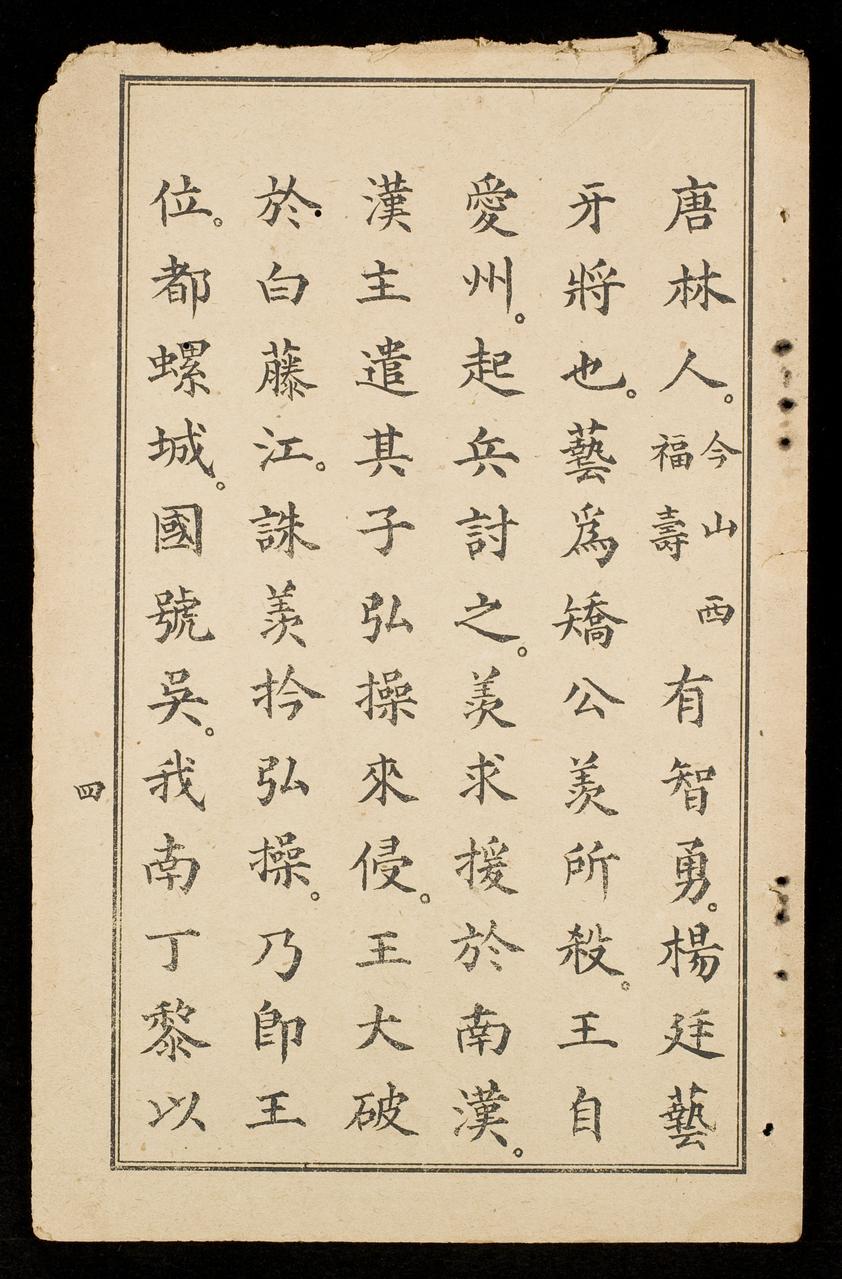 唐林人。今山西福壽有智勇。楊廷藝
牙將也。藝爲矯公羡所殺。王自
愛州。起兵討之。羡求援於南漢。
漢主遣其子弘操來侵。王大破
於白藤江。誅羡扲弘操。乃卽王
位。都螺城。國號吳。我南丁黎以
四